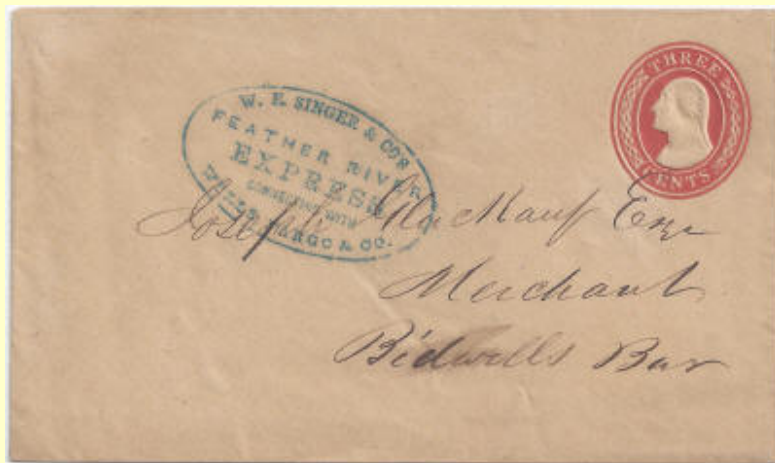 THREE
CENTS
W. E. SINGER & CO'S
FEATHER RIVER
EXPRESS
CONNECTION WITH
WELLS FARGO & CO.
Joseph Esqr
Merchant
Bidwells Bar